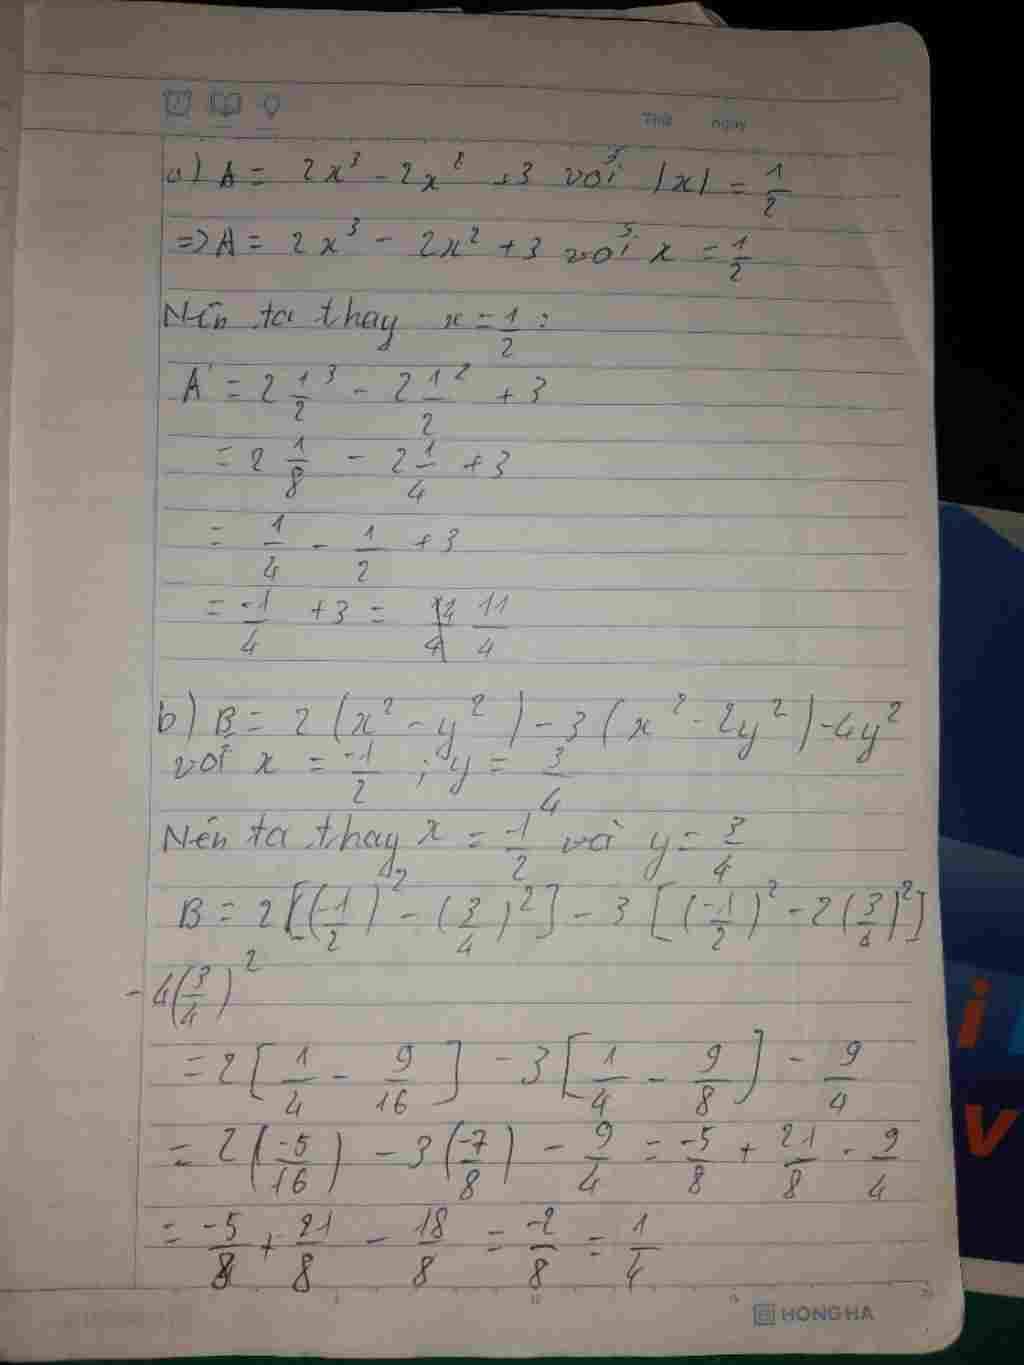 Thứ ngày
a) A = 2x³ - 2x² + 3 với |x| = 1/2
=> A = 2x³ - 2x² + 3 với x = 1/2
Nên ta thay x = 1/2 :
A = 2 1/2³ - 2 1/2² + 3
= 2 1/8 - 2 1/4 + 3
= 1/4 - 1/2 + 3
= -1/4 + 3 = 11/4
b) B = 2(x² - y²) - 3(x² - 2y²) - 4y²
với x = -1/2 ; y = 3/4
Nên ta thay x = -1/2 và y = 3/4
B = 2[(-1/2)² - (3/4)²] - 3[(-1/2)² - 2(3/4)²]
- 4(3/4)²
= 2[1/4 - 9/16] - 3[1/4 - 9/8] - 9/4
= 2(-5/16) - 3(-7/8) - 9/4 = -5/8 + 21/8 - 9/4
= -5/8 + 21/8 - 18/8 = -2/8 = 1/4
HONG HA
i
v